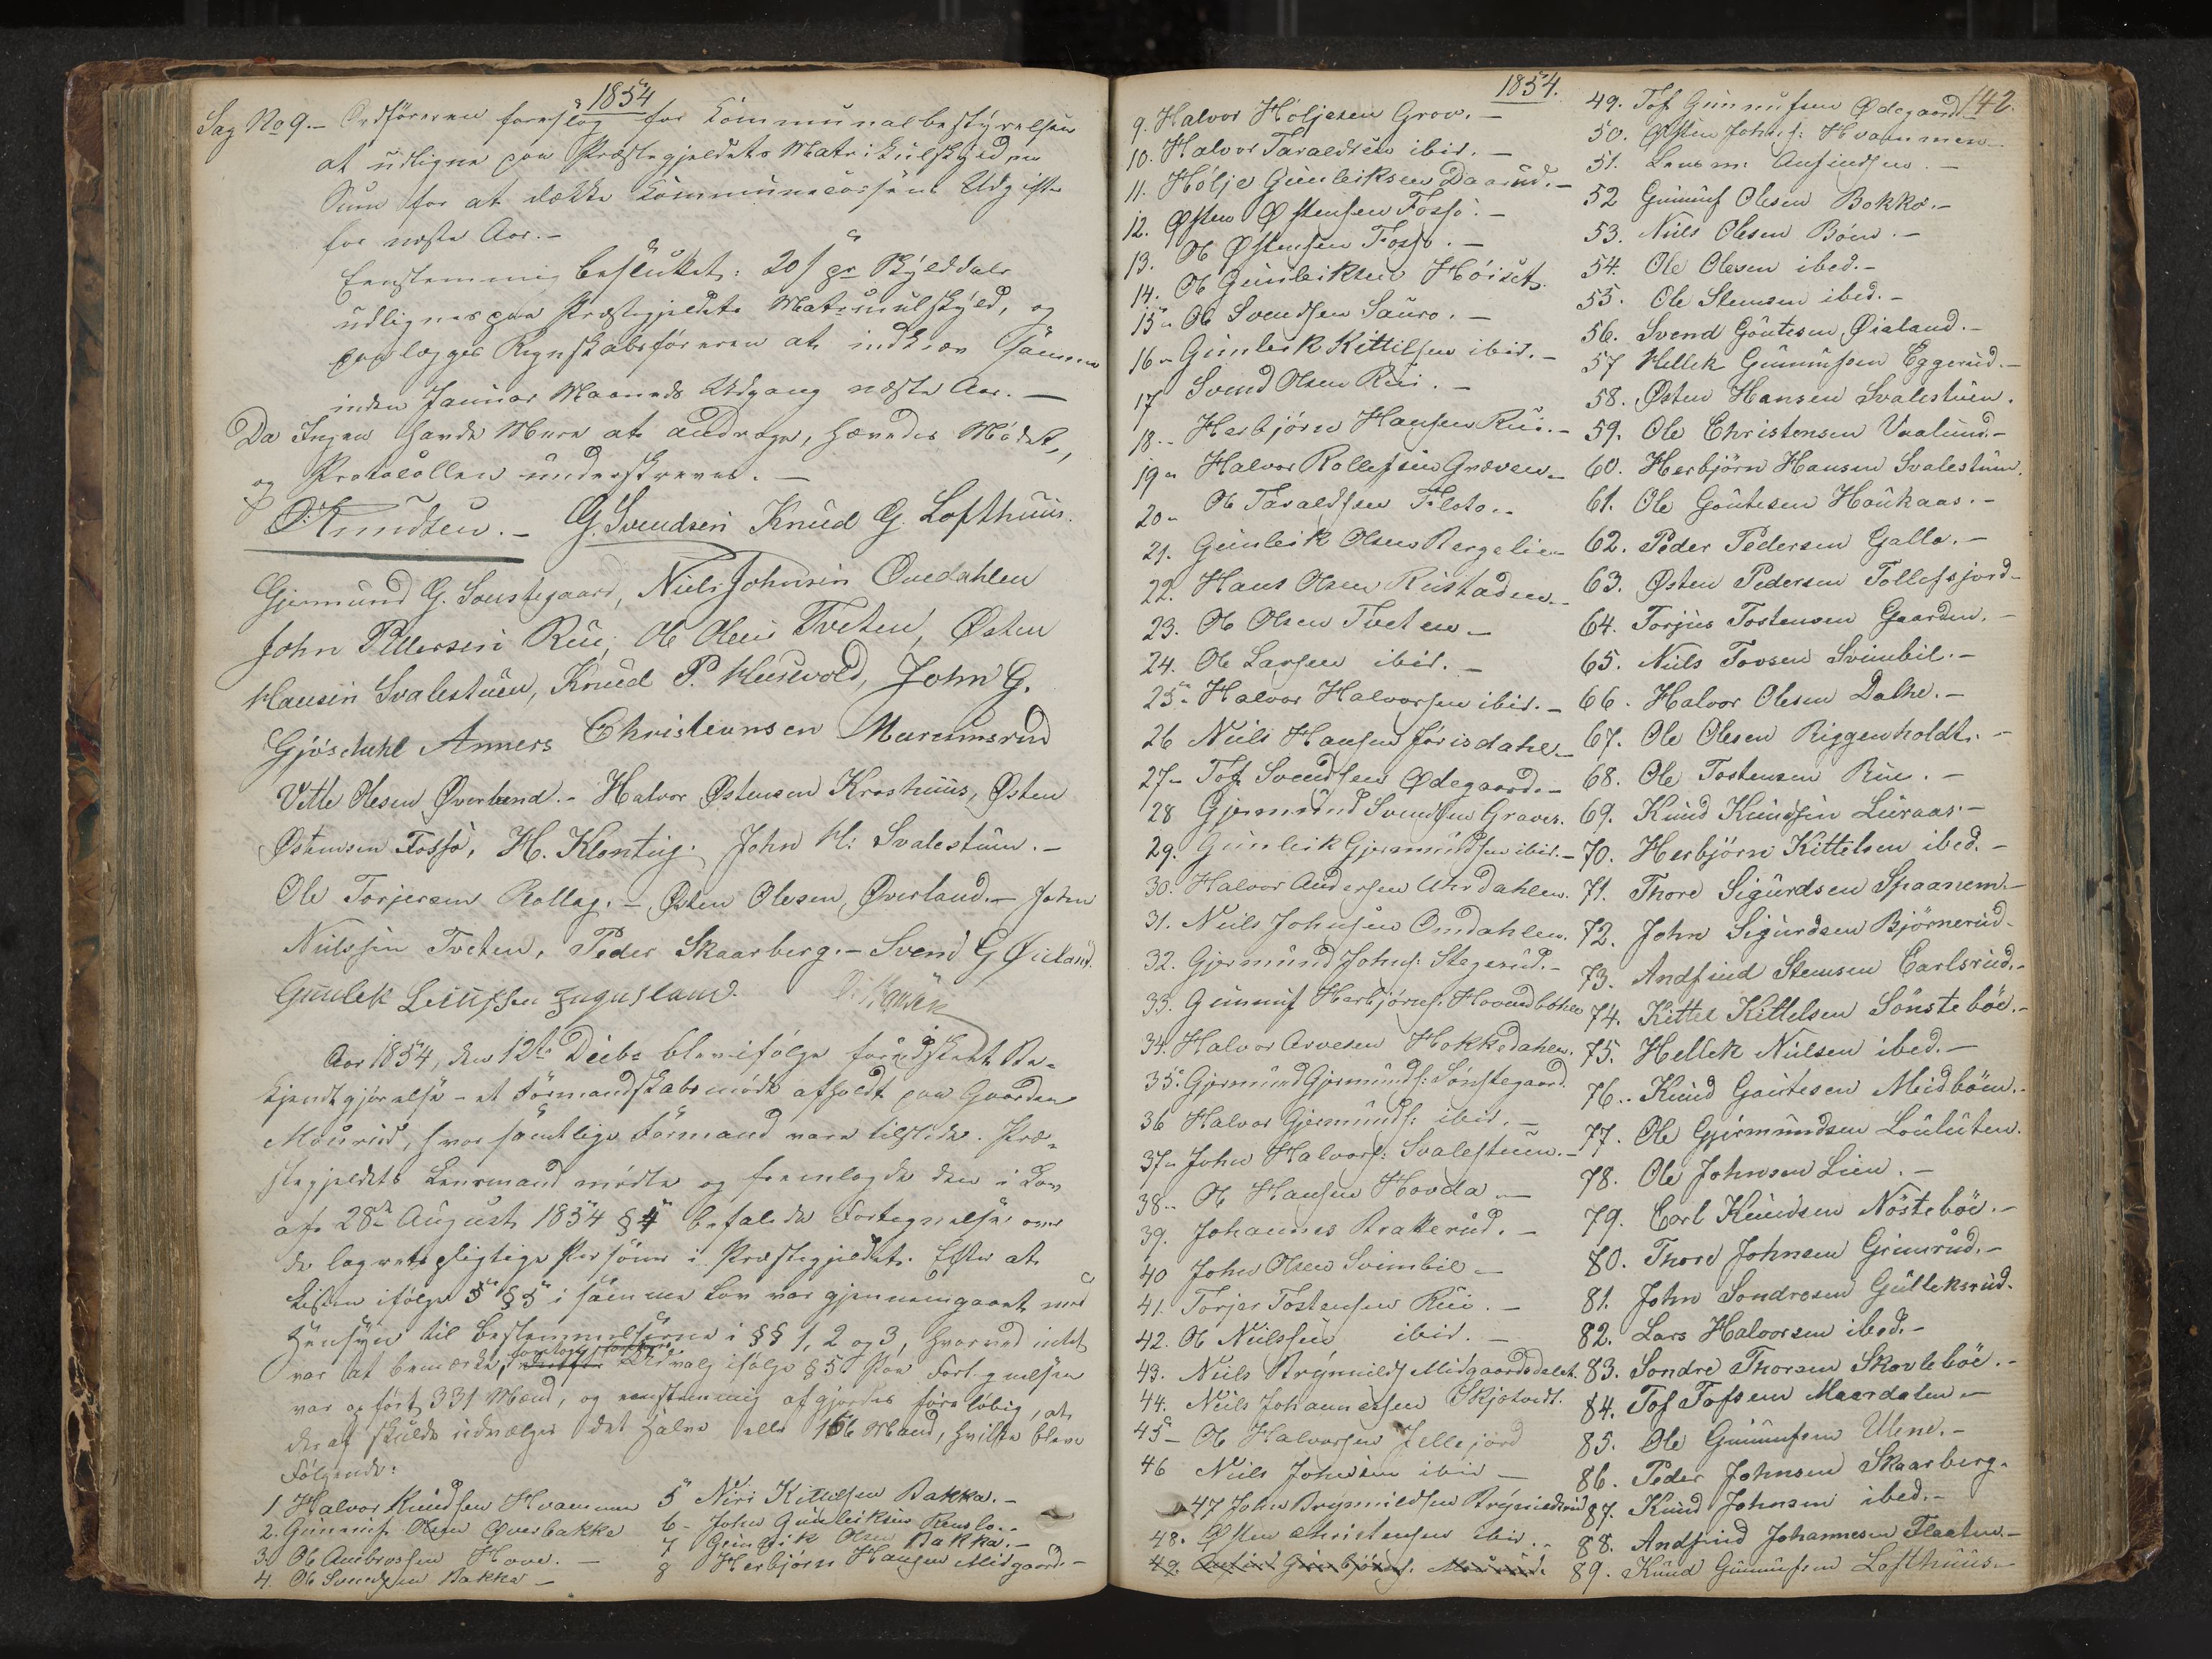 1854
Sag No 9. – Ordføreren foreslog for Kommunalbestyrelsen
at udligne paa Præstegjeldets Matrikulskyld en
Sum for at dække Kommunecassens Udgifter
for næste Aar. –
Eenstemmig besluttet: 20 s pr Skylddaler
udlignes paa Præstegjeldets Matriculskyld, og
paalægges Regnskabsføreren at indkræve samme
inden Januar Maaneds Udgang næste Aar. –
Da Ingen havde Mere at andrage, hævedes Mødet,
og Protocollen underskrevet. –
O Knudsen. – G. Svendsen Knud G. Lofthuus.
Gjermund G. Sønstegaard, Niels Johnsen Omdahlen
John Pettersen Rue, Ole Olsen Tveten, Østen
Hansen Svalestuen, Knud P. Husevold, John G.
Gjøsdahl Anners Christiansen Murumsrud
Vetle Olesen Øverland. – Halvor Østensen Kroshuus, Østen
Østensen Fossø, H. Klonteig. John H: Svalestuen. –
Ole Torjersen Rollag. – Østen Olesen, Øverland. – John
Nielssen Tveten, Peder Skaarberg. – Svend G Øieland.
Gunlek Leiufsen
Aar 1854, den 12te Decbr blev ifølge forudskeet Be-
kjendtgjørelse – et Formandskabsmøde afholdt paa Gaarden
Mourud, hvor samtlige Formænd vare tilstede. Præ-
stegjeldets Lensmand mødte og fremlagde den i Lov
af 28de August 1854 § 4 befalede Fortegnelse over
de lagretspligtige Personer i Præstegjeldet. Efter at
Listen ifølge § 5 i samme Lov var gjennemgaaet med
Hensyn til Bestemmelserne i §§ 1, 2 og 3, hvorved intet
var at bemærke, Udvalg ifølge § 5. Paa Fortegnelsen
var opført 331 Mænd, og eenstemmig afgjordes foreløbig, at
deraf skulde udvælges det halve eller 166 Mænd, hvilke bleve
Følgende:
1 Halvor Knudsen Hvammen
2. Gunnuf Olsen Øverbakke
3. Ole Ambrossen Hove. –
4. Ole Svendsen Bakka –
5 Niri Kittilsen Bakka. –
6 – John Gunleiksen Renslo. –
7 Gunleik Olsen Bakka. –
8 Herbjørn Hansen Midgaard. –
1854.
9. Halvor Høljesen Grov. –
10. Halvor Taraldsen ibid. –
11. Hølje Gunleiksen Daarud. –
12. Østen Østensen Fossø. –
13. Ole Østensen Fossø. –
14. Ole Gunleiksen Høiset.
15 – Ole Svendsen Sauro. –
16 – Gunleik Kittilsen ibid. –
17 Svend Olsen Rui. –
18 – Herbjørn Hansen Rui. –
19 – Halvor Rollefsen Græven –
20 – Ole Taraldsen Floto. –
21. Gunleik Olsen Bergelie –
22. Hans Olsen Rustaden. –
23. Ole Olsen Tveten –
24. Ole Larsen ibid. –
25 – Halvor Halvorsen ibid. –
26 Niels Hansen Jørisdahl –
27 – Tof Svendsen Ødegaard. –
28 Gjermund Svendsen Graver.
29. Gunleik Gjermundsen ibid. –
30. Halvor Andersen Uhrdahlen.
31. Niels Johnsen Omdahlen.
32. Gjermund Johns: Stegerud. –
33. Gunnuf Herbjørns: Hovendbøthen
34. Halvor Arvesen Hokkedahlen.
35. Gjermund Gjermunds: Sønstegaard.
36 Halvor Gjermunds: ibid. –
37 – John Halvors: Svalestuen. –
38 – Ole Hansen Hovda –
39. Johannes Brakerud. –
40 John Olsen Svimbil –
41. Torjer Tostensen Rui. –
42. Ole Nielssen ibid. –
43. Niels Brynnilds Midgaardsdalet.
44. Niels Johannessen Skjøtvedt.
45 – Ole Halvorsen Jellejord
46 Niels Johnsen ibid –
47 John Brynnildsen Brynildsrud
48. Østen Christensen ibid. –
142.
49. Tof Gunnufsen Ødegaard
50. Østen Johns: Hvammen –
51. Lensm: Anfindsen –
52 Gunnuf Olesen Bokko. –
53. Niels Olesen Bøen. –
54. Ole Olesen ibed. –
55. Ole Stensen ibed. –
56. Svend Goutesen Øialand. –
57 Hellek Gunnufsen Eggerud. –
58. Østen Hansen Svalestuen.
59. Ole Christensen Vaalund. –
60. Herbjørn Hansen Svalestuen.
61. Ole Goutesen Houkaas. –
62. Peder Pedersen Gallo. –
63. Østen Pedersen Tollefsjord –
64. Torjus Tostensen Gaarden. –
65. Niels Tovsen Svimbil. –
66. Halvor Olesen Dalhe. –
67. Ole Olesen Riggenholdt. –
68. Ole Tostensen Rue. –
69. Knud Knudsen Luraas. –
70. Herbjørn Kittelsen ibed. –
71. Thore Sigurdsen Spaanem –
72. John Sigurdsen Bjørnerud –
73. Andfind Stensen Carlsrud. –
74. Kittel Kittelsen Sønstebøe. –
75. Hellek Nielsen ibed. –
76. – Knud Goutesen Meidbøen. –
77. Ole Gjermundsen Louluten.
78. Ole Johnsen Lien. –
79. Carl Knudsen Nøstebøe. –
80. Thore Johnsen Grimrud. –
81. John Sondresen Gulleksrud.
82. Lars Halvorsen ibed. –
83. Sondre Thorsen Skovlebøe. –
84. Tof Tofsen Maardalen –
85. Ole Gunnufsen Ulene. –
86. Peder Johnsen Skaarberg.
87. Knud Johnsen ibed. –
88. Andfind Johannesen Flaaten –
89. Knud Gunnufsen Lofthuus –